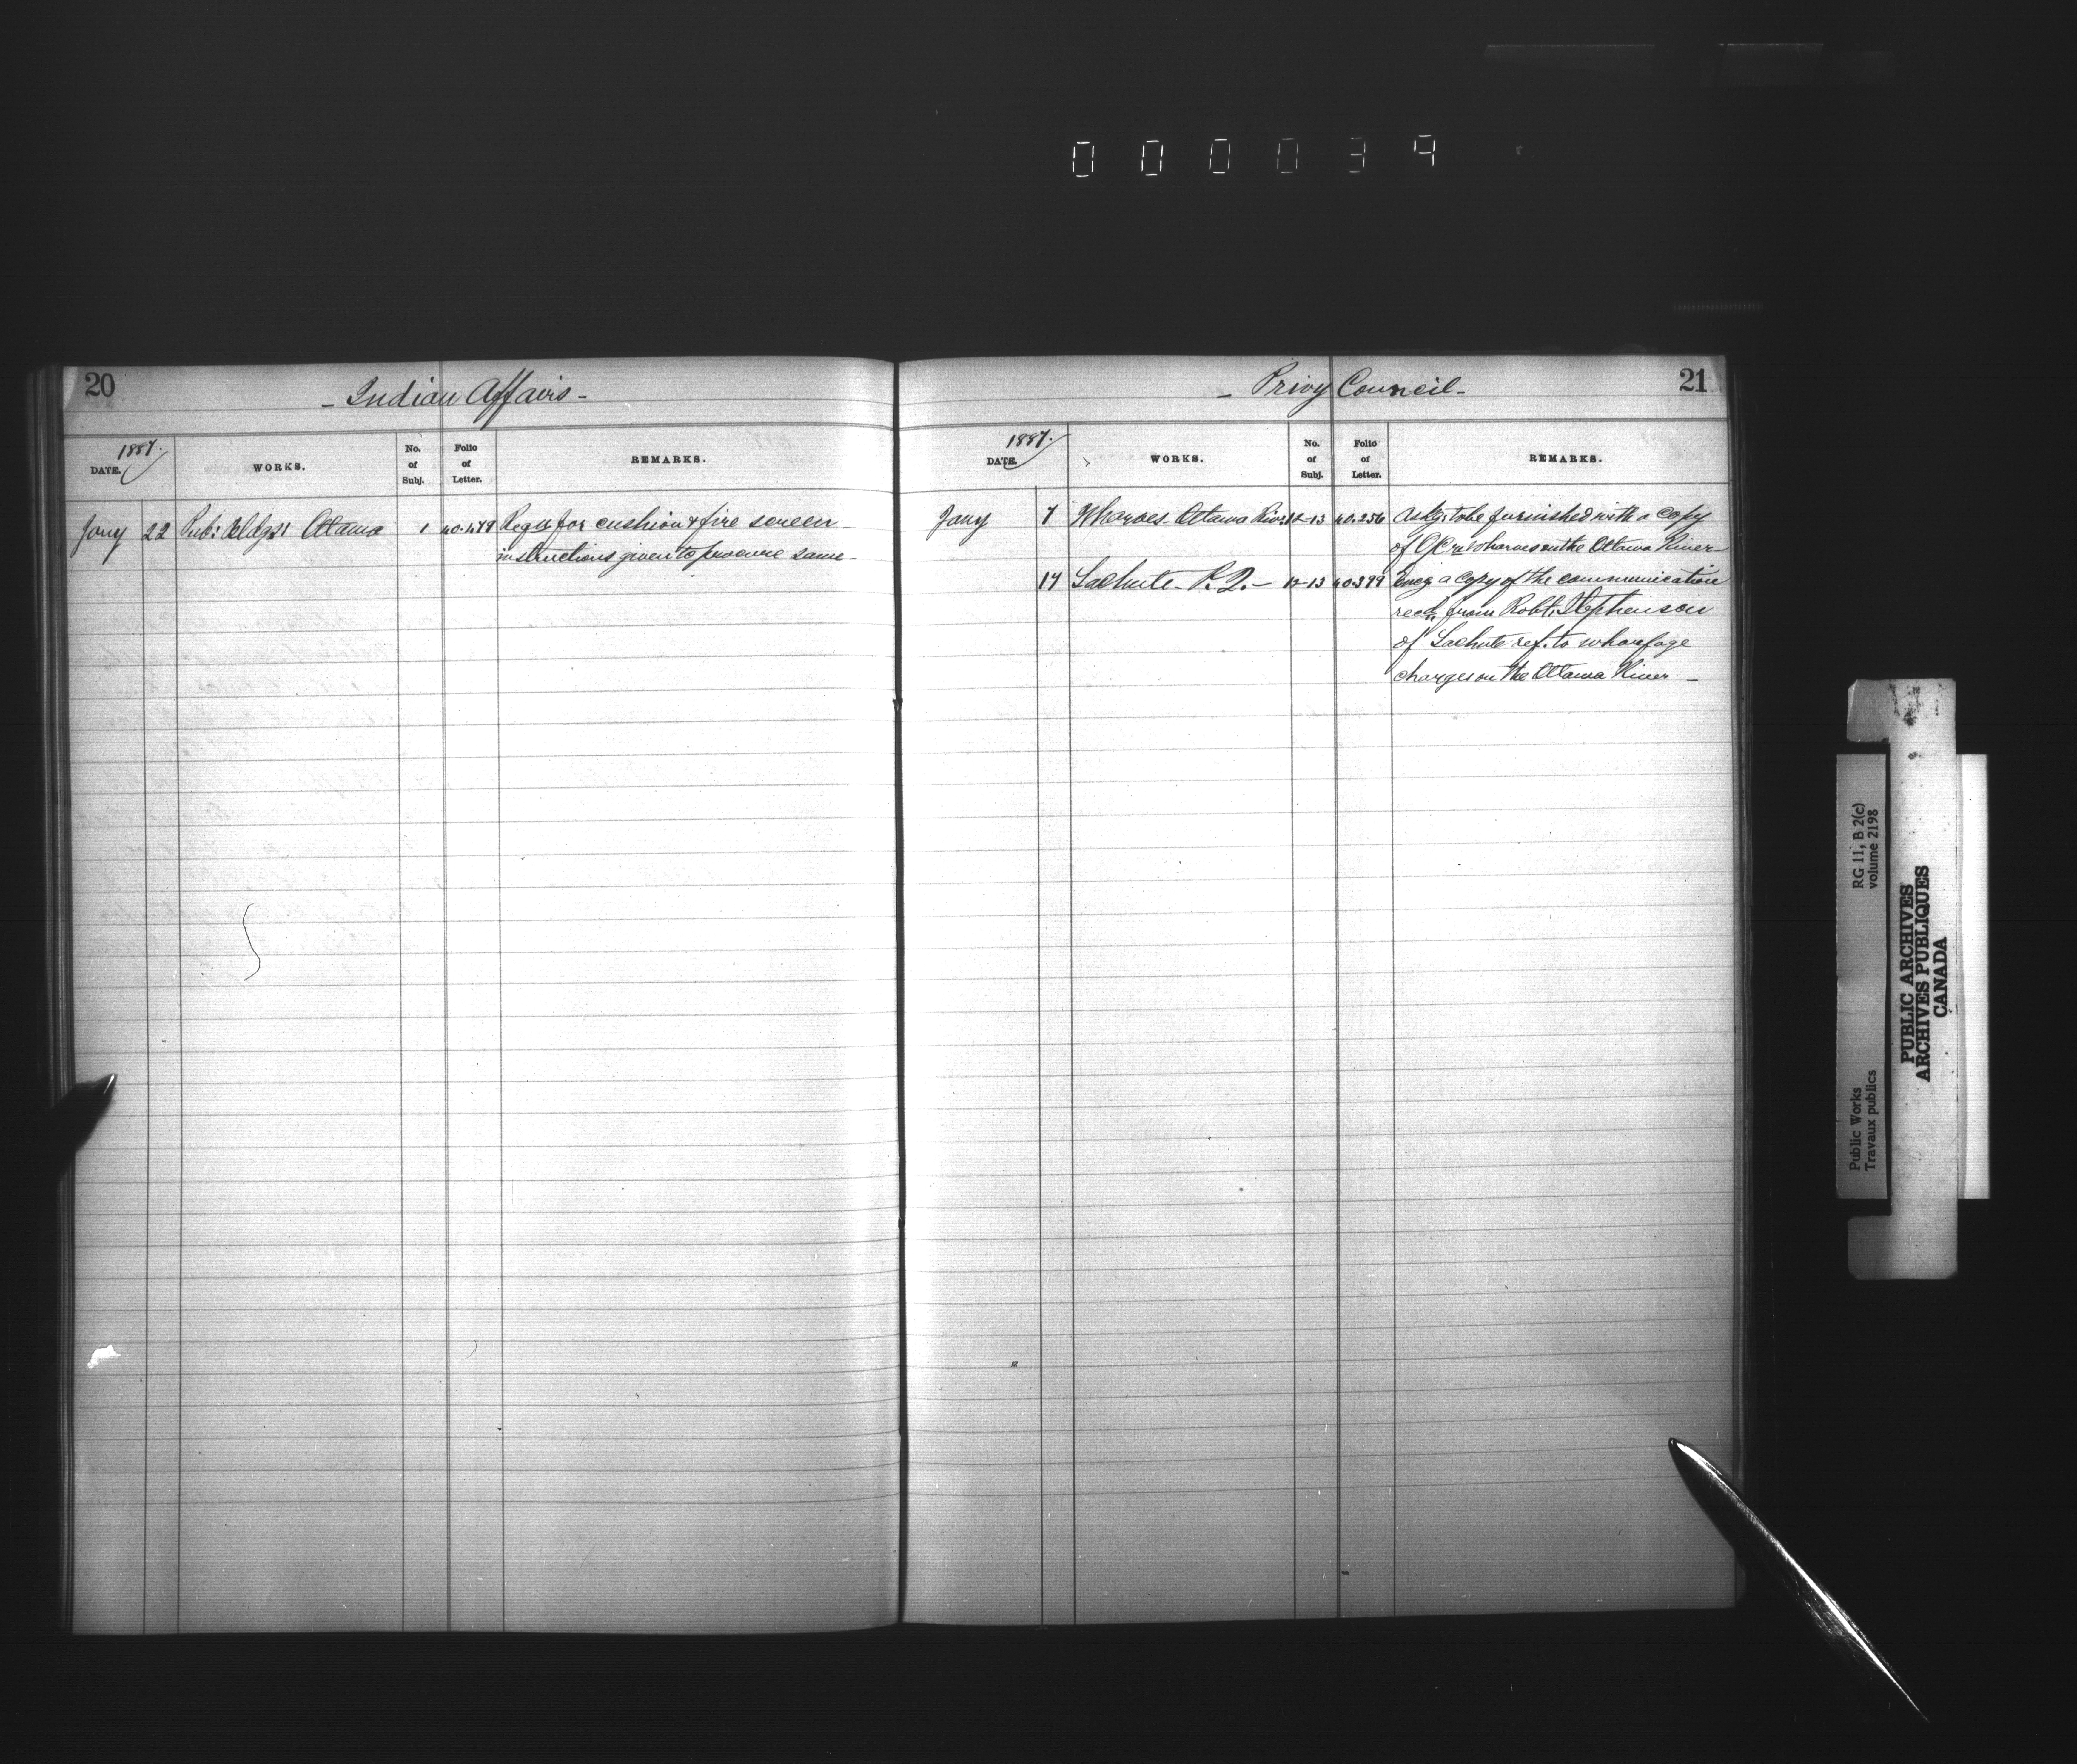 000039
20
- Indian Affairs -
1887.
DATE.
WORKS.
No. of Subj.
Folio of Letter.
REMARKS.
Jany 22 Pub: Bldgs: Ottawa 1 40.479 Reqn for cushion & fire screen -
instructions given to procure same -
- Privy Council -
21
1887.
DATE.
WORKS.
No. of Subj.
Folio of Letter.
REMARKS.
Jany 7 Wharves - Ottawa River 12-13 40.256 Askg: to be furnished with a copy
of O/C re Wharves on the Ottawa River -
17 Lachute - P.Q. - 12-13 40.399 Encg a copy of the communication
recd. from Robt. Stephenson
of Lachute ref. to wharfage
charges on the Ottawa River -
Public Works
Travaux publics
RG 11, B 2(c)
volume 2198
PUBLIC ARCHIVES
ARCHIVES PUBLIQUES
CANADA